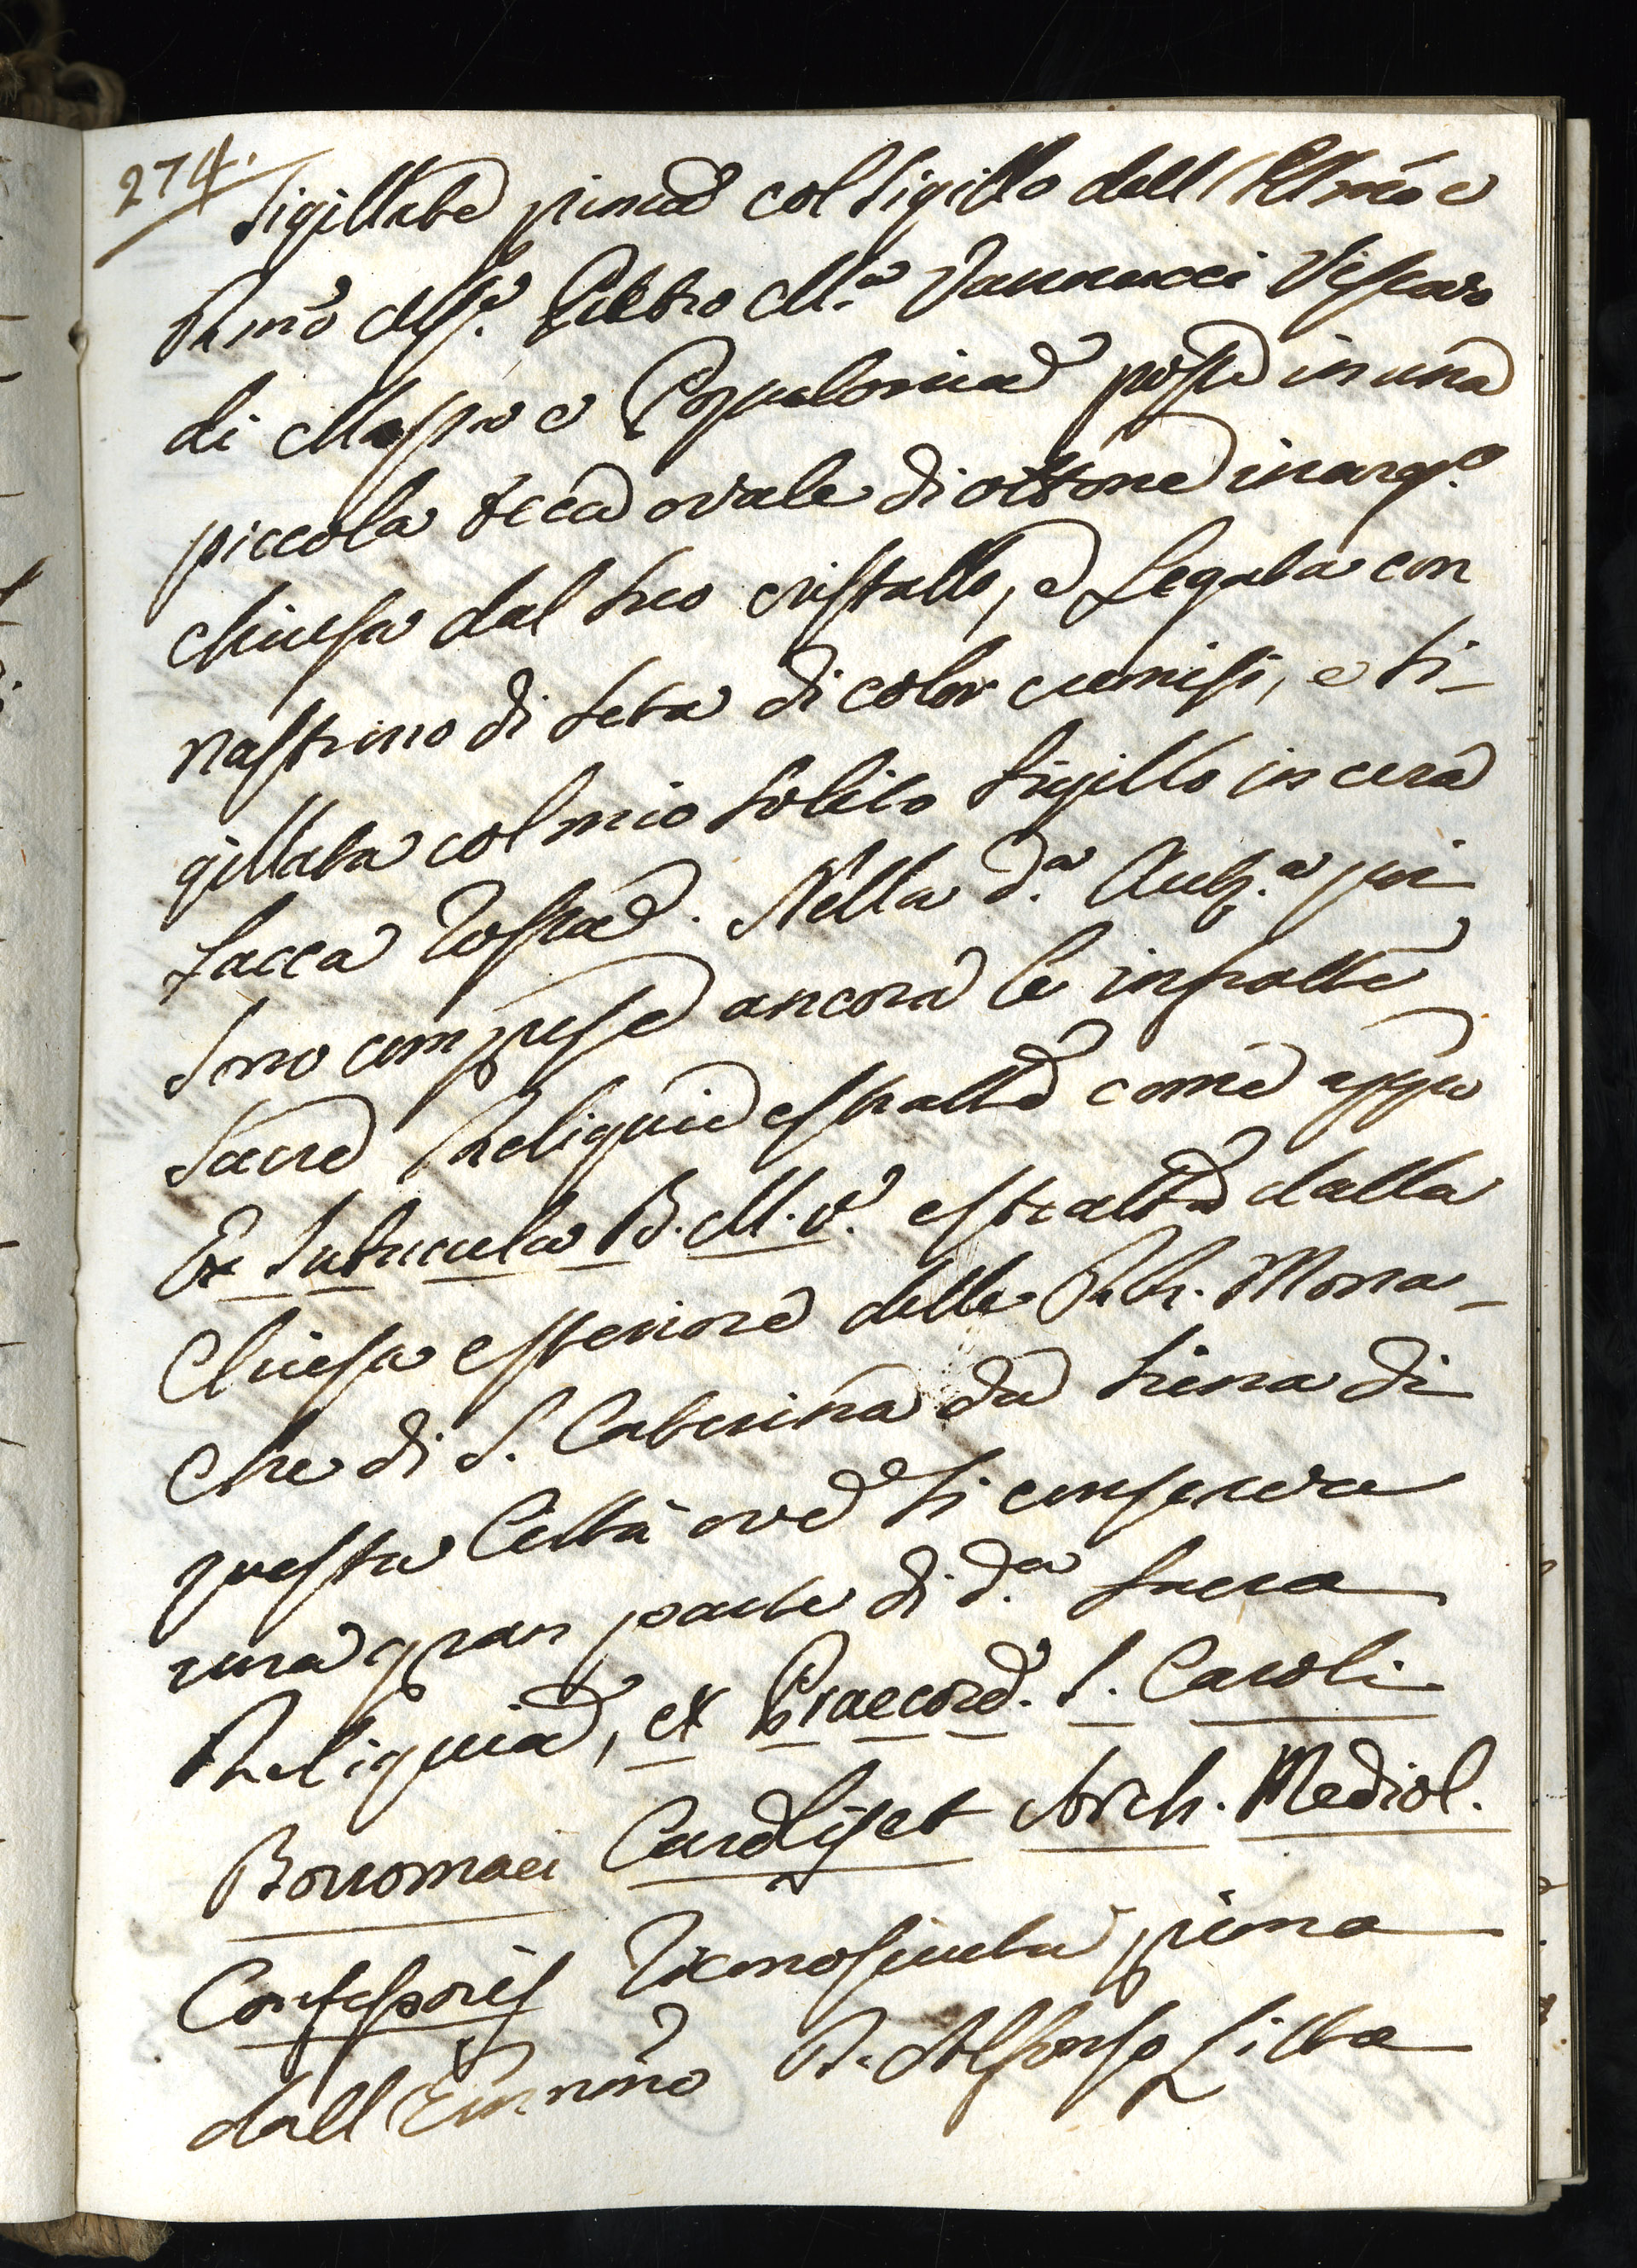 274.
Sigillate prima col Sigillo dell'Illmo e
Rmo Msr. Pietro Ma. Vannucci Vescovo
di Massa e Populonia poste in una
piccola teca ovale di ottone inarg.o
chiusa dal suo cristallo, e Legata con
nastrino di seta di color cremisi, e si-
gillata col mio solito Sigillo in cera
lacca rossa. Nella d.a Aut.a pur
sono comprese ancora le infratte
Sacre Reliquie estratte come appo
Ex Intucula B. M. V. estratta dalla
Chiesa esteriore delle RR. Mona-
che di S. Caterina da Siena di
questa Città ove si conserva
una gran parte di d.a Sacra
Reliquia, ex Praecord. S. Caroli
Borromaei Card. et Arch. Mediol.
Confessoris riconosciuta prima
dall'Emmo R. Alfonso Litta